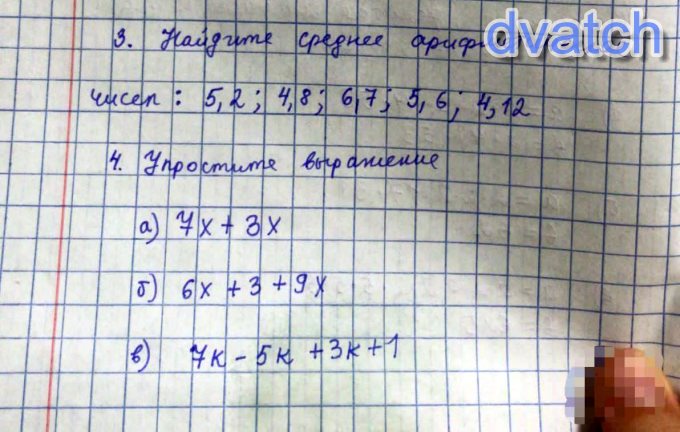 3. Найдите среднее
dvatch
чисел: 5,2; 4,8; 6,7; 5,6; 4,12
4. Упростите выражение
а) 7х + 3х
б) 6х + 3 + 9х
в) 7к - 5к + 3к + 1